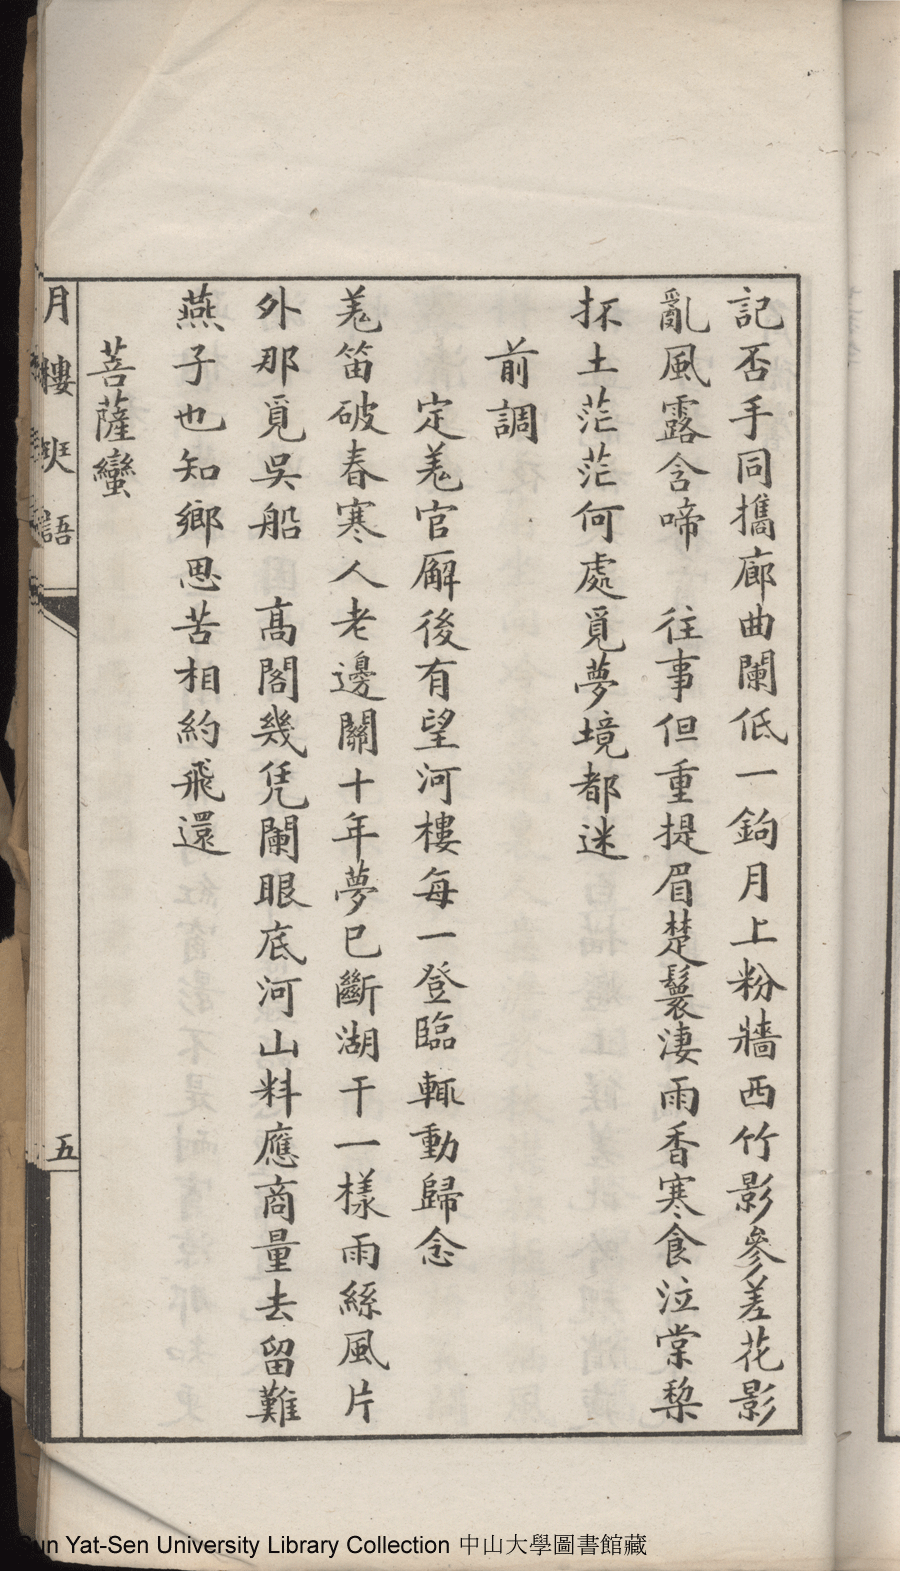 記否手同攜廊曲闌低一鉤月上粉牆西竹影參差花影
亂風露含啼　往事但重提眉楚鬟淒雨香寒食泣棠棃
抔土茫茫何處覓夢境都迷
前調
定羌官廨後有望河樓每一登臨輒動歸念
羌笛破春寒人老邊關十年夢已斷湖干一樣雨絲風片
外那覓吳船　高閣幾凭闌眼底河山料應商量去留難
燕子也知鄉思苦相約飛還
菩薩蠻
月樓琰語
五
Sun Yat-Sen University Library Collection 中山大學圖書館藏